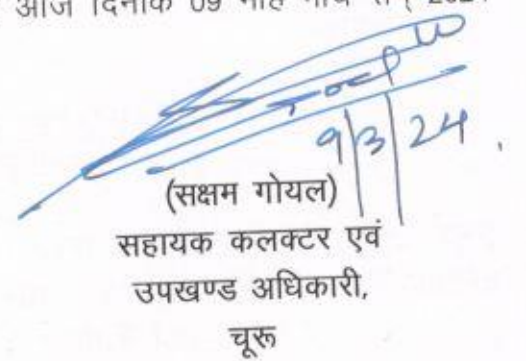 आज दिनांक 09 माह मार्च सन् 2024
9/3/24.
(सक्षम गोयल)
सहायक कलक्टर एवं
उपखण्ड अधिकारी,
चूरू